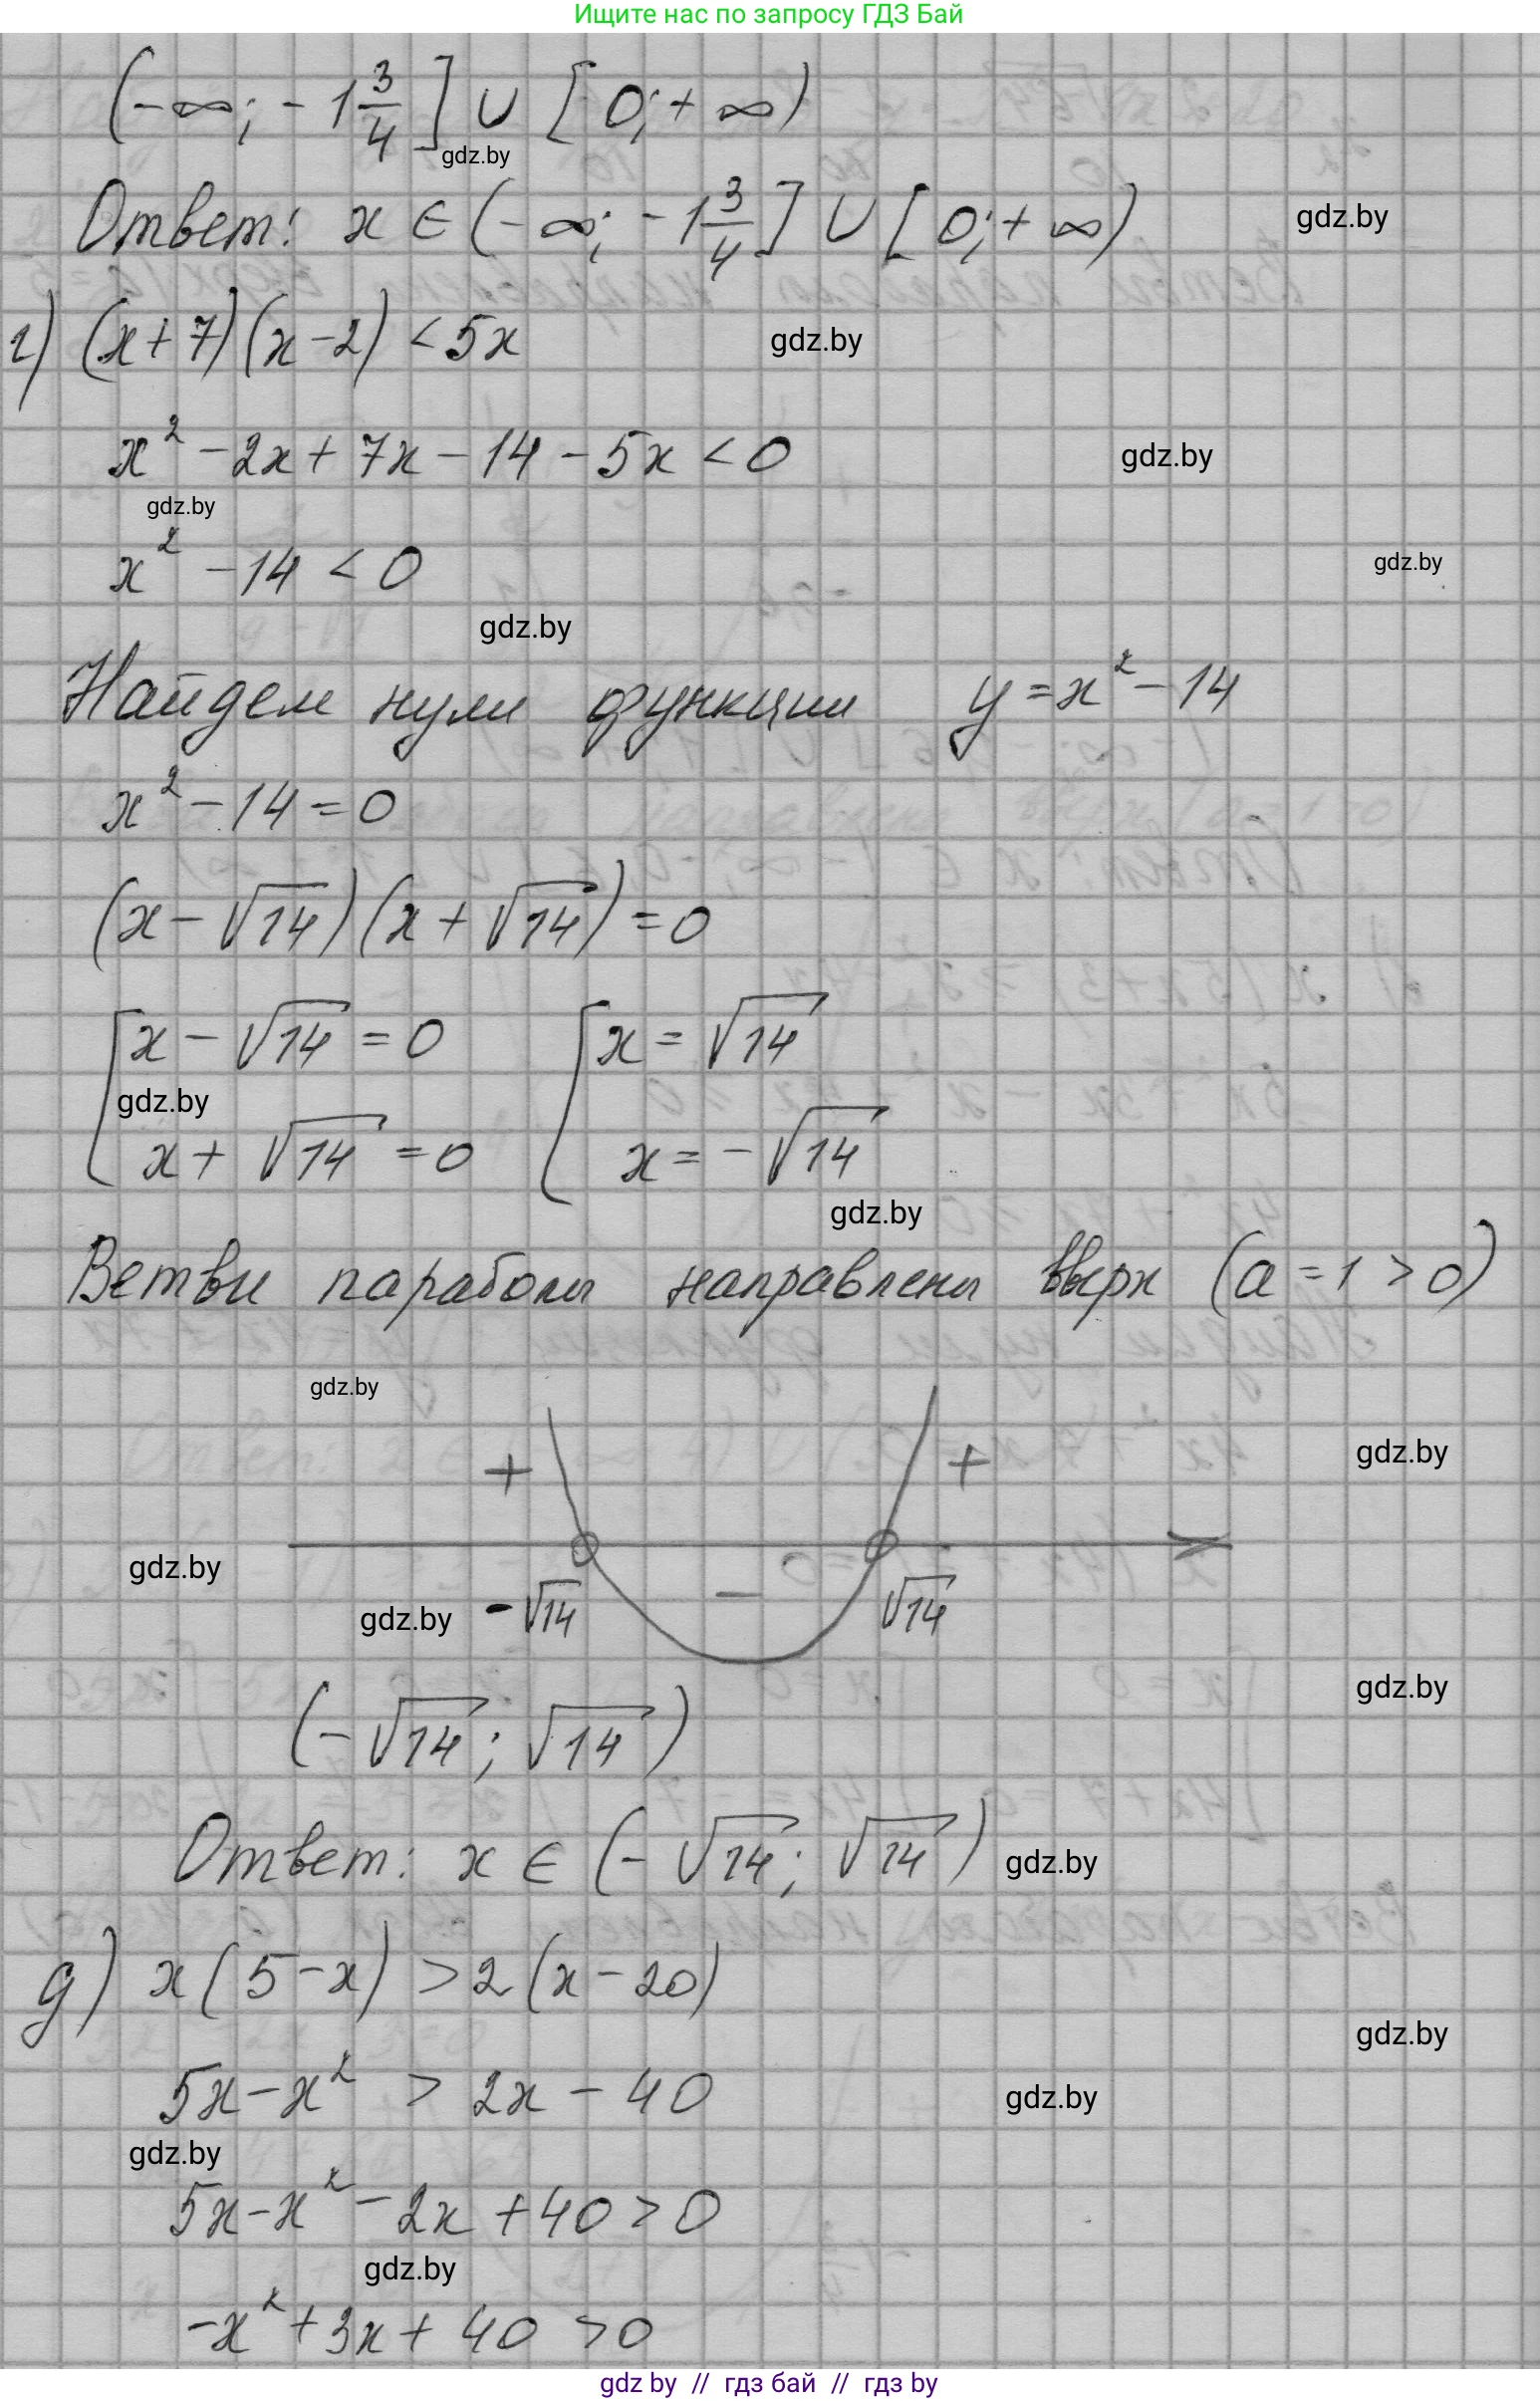 Ищите нас по запросу ГДЗ Бай
(-∞; -1 3/4] ∪ [0; +∞)
gdz.by
Ответ: x ∈ (-∞; -1 3/4] ∪ [0; +∞)
gdz.by
г) (x+7)(x-2) < 5x
gdz.by
x² - 2x + 7x - 14 - 5x < 0
gdz.by
gdz.by
x² - 14 < 0
gdz.by
gdz.by
Найдем нули функции y = x² - 14
x² - 14 = 0
(x - √14)(x + √14) = 0
[ x - √14 = 0 [ x = √14
gdz.by
x + √14 = 0 x = -√14
gdz.by
Ветви параболы направлены вверх (a = 1 > 0)
gdz.by
+ +
gdz.by
gdz.by
-
gdz.by -√14 √14
gdz.by
(-√14; √14)
Ответ: x ∈ (-√14; √14)
gdz.by
д) x(5-x) > 2(x-20)
gdz.by
5x - x² > 2x - 40
gdz.by
gdz.by
5x - x² - 2x + 40 > 0
gdz.by
-x² + 3x + 40 > 0
gdz by // гдз бай // гдз by